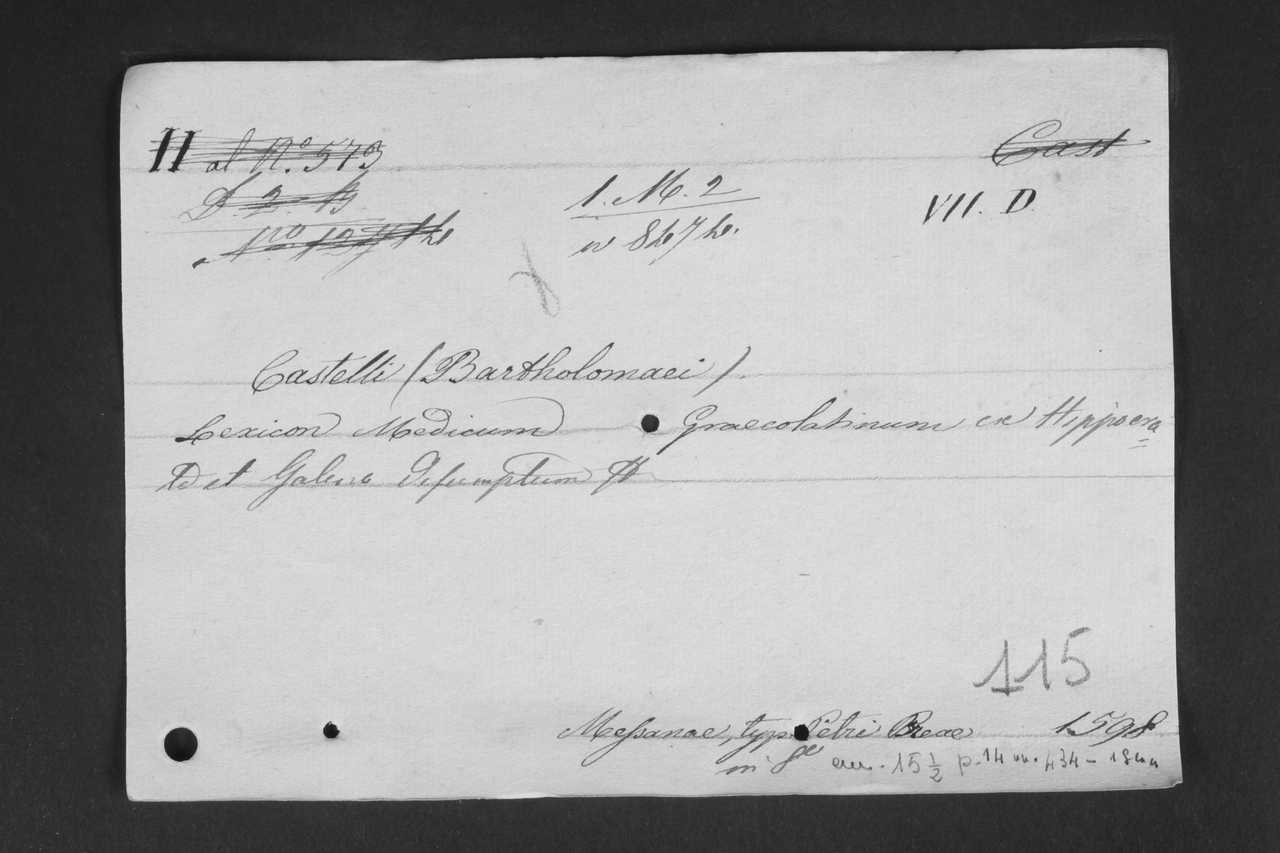 H al Nº. 573
Cast
D. 2. B
1. M. 2
VII. D.
Nº
n 847
Castelli (Bartholomaei).
Lexicon Medicum Graecolatinum ex Hippocra=
te et Galeno desumptum
115
Meſsanae, typ. Petri Breae 1598
in 8º cm. 15 1/2 p. 14 nn. 434 - 18 nn